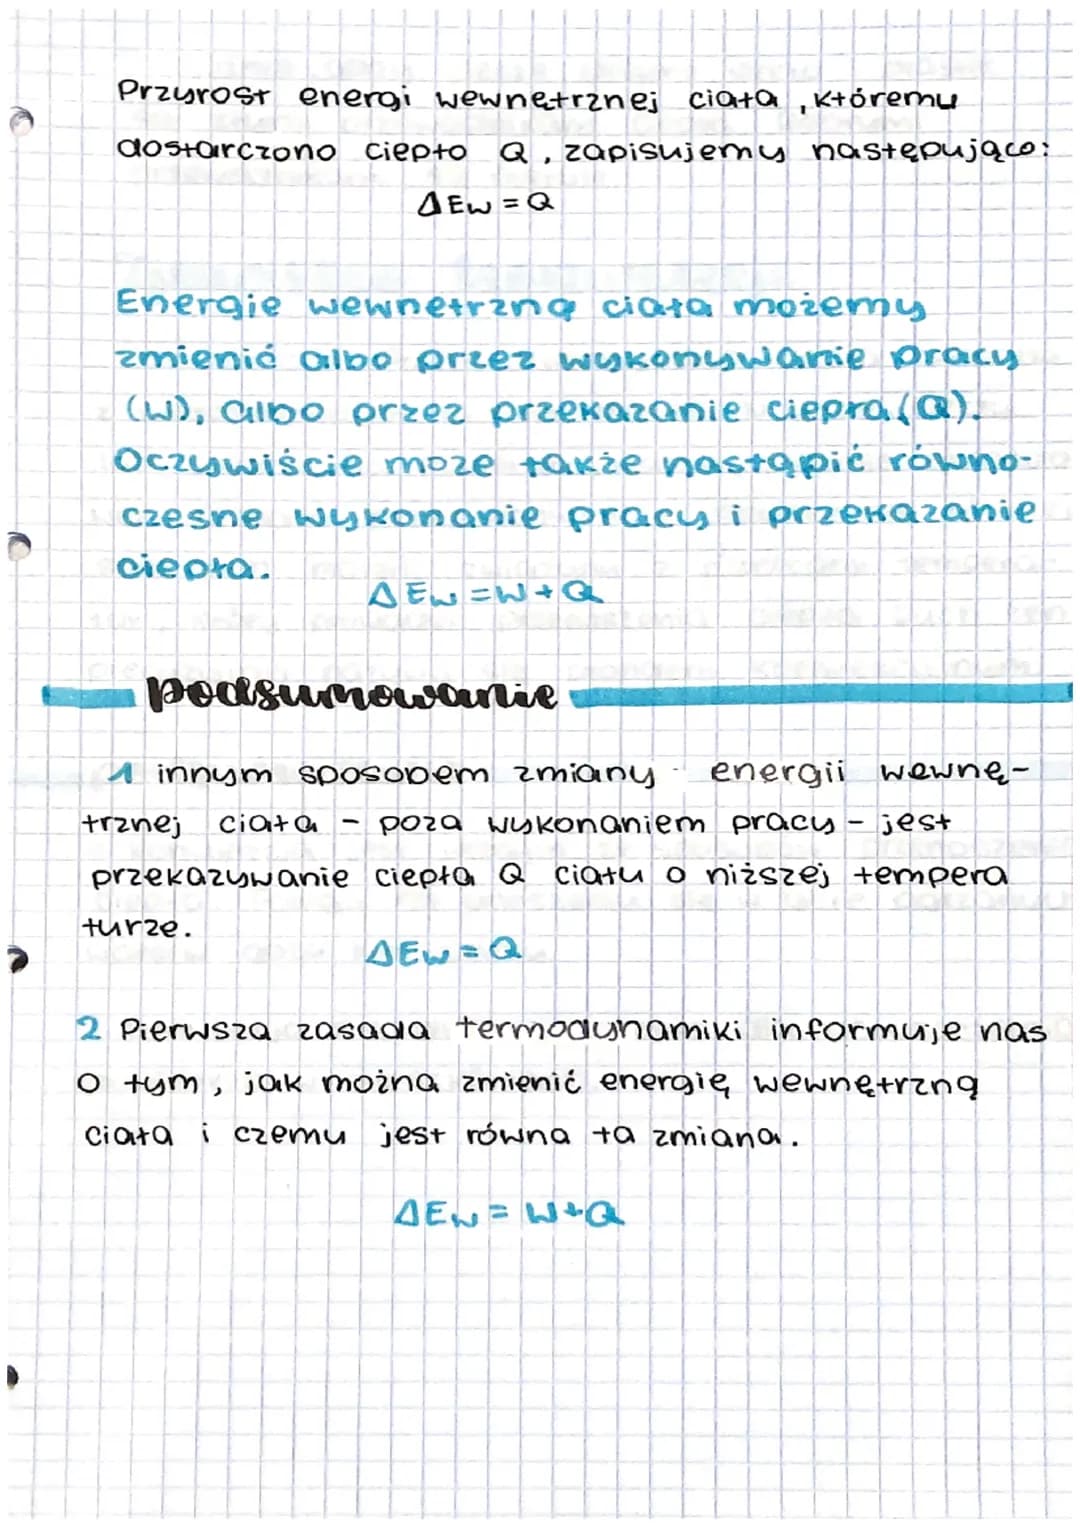 Przyrost energi wewnętrznej ciała, któremu
dostarczono ciepło Q, zapisujemy następująco:
ΔEw = Q
Energię wewnętrzną ciała możemy
zmienić albo przez wykonywanie pracy
(W), albo przez przekazanie ciepła (Q).
Oczywiście może także nastąpić równo-
czesne wykonanie pracy i przekazanie
ciepła.
ΔEw = W + Q
podsumowanie
1 innym sposobem zmiany energii wewnę-
trznej ciała - poza wykonaniem pracy - jest
przekazywanie ciepła Q ciału o niższej tempera
turze.
ΔEw = Q
2 Pierwsza zasada termodynamiki informuje nas
o tym, jak można zmienić energię wewnętrzną
ciała i czemu jest równa ta zmiana.
ΔEw = W+Q